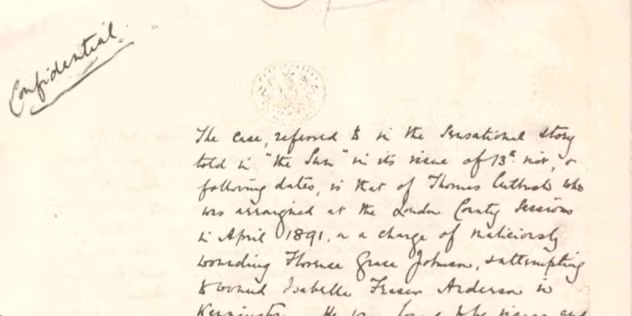 Confidential
The case, referred to in the sensational story
told in "the Sun" in its issue of 13th inst, &
following dates, is that of Thomas Cutbush who
was arraigned at the London County Sessions
in April 1891, on a charge of maliciously
wounding Florence Grace Johnson, & attempting
to wound Isabelle Fraser Anderson in
Kennington. He was found to be insane, and